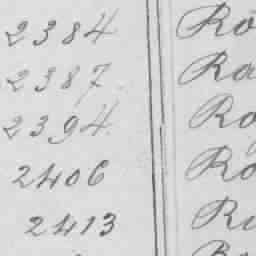 2384 Ro
2387 Ra
2394 Ro
2406 Ro
2413 Ri